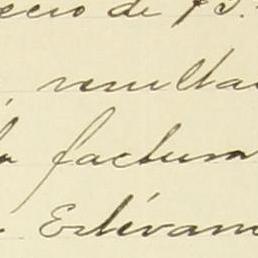 ecio de 73.
resulta
la factura
Estévan